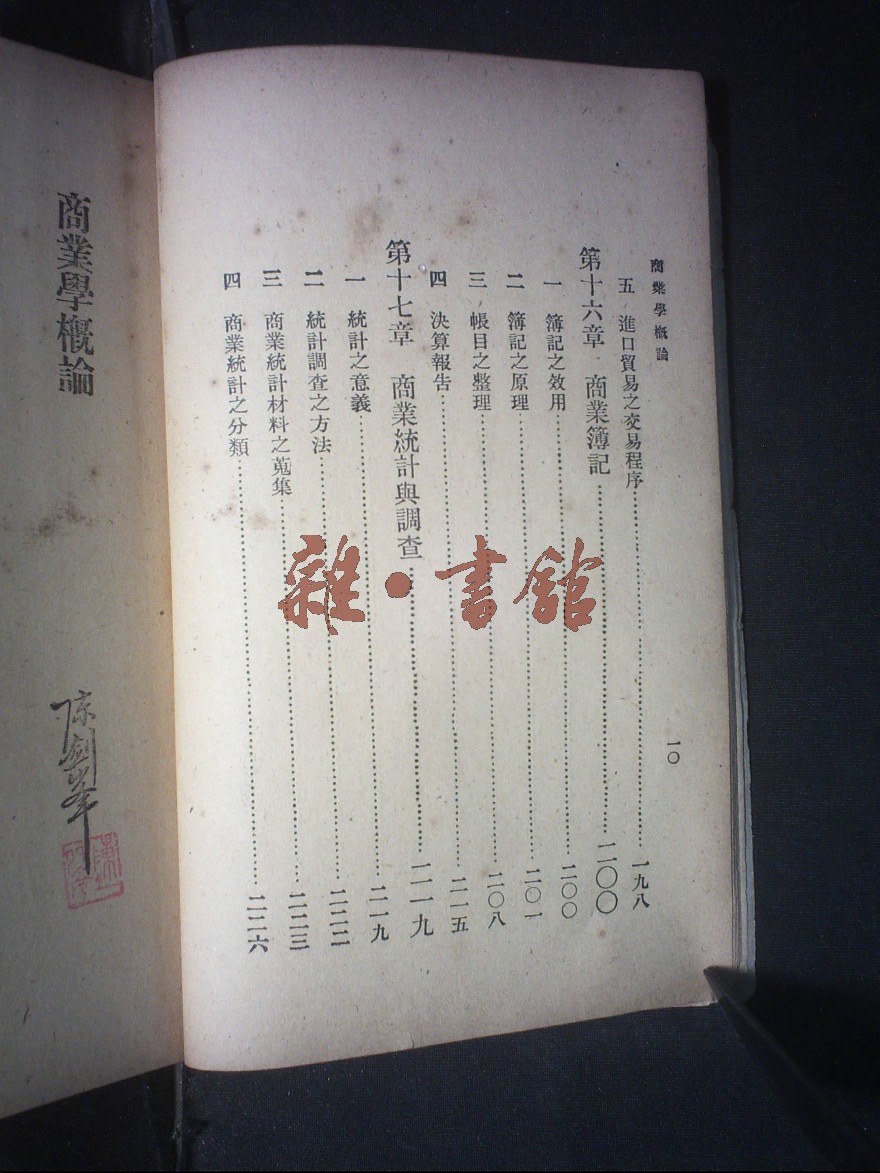 商業學概論
五 進口貿易之交易程序……一九八
第十六章 商業簿記……二〇〇
一 簿記之效用……二〇〇
二 簿記之原理……二〇一
三 帳目之整理……二〇八
四 決算報告……二一五
第十七章 商業統計與調查……二一九
一 統計之意義……二一九
二 統計調查之方法……二二二
三 商業統計材料之蒐集……二二三
四 商業統計之分類……二二六
一〇
商業學概論
陳劍峯
雜·書館